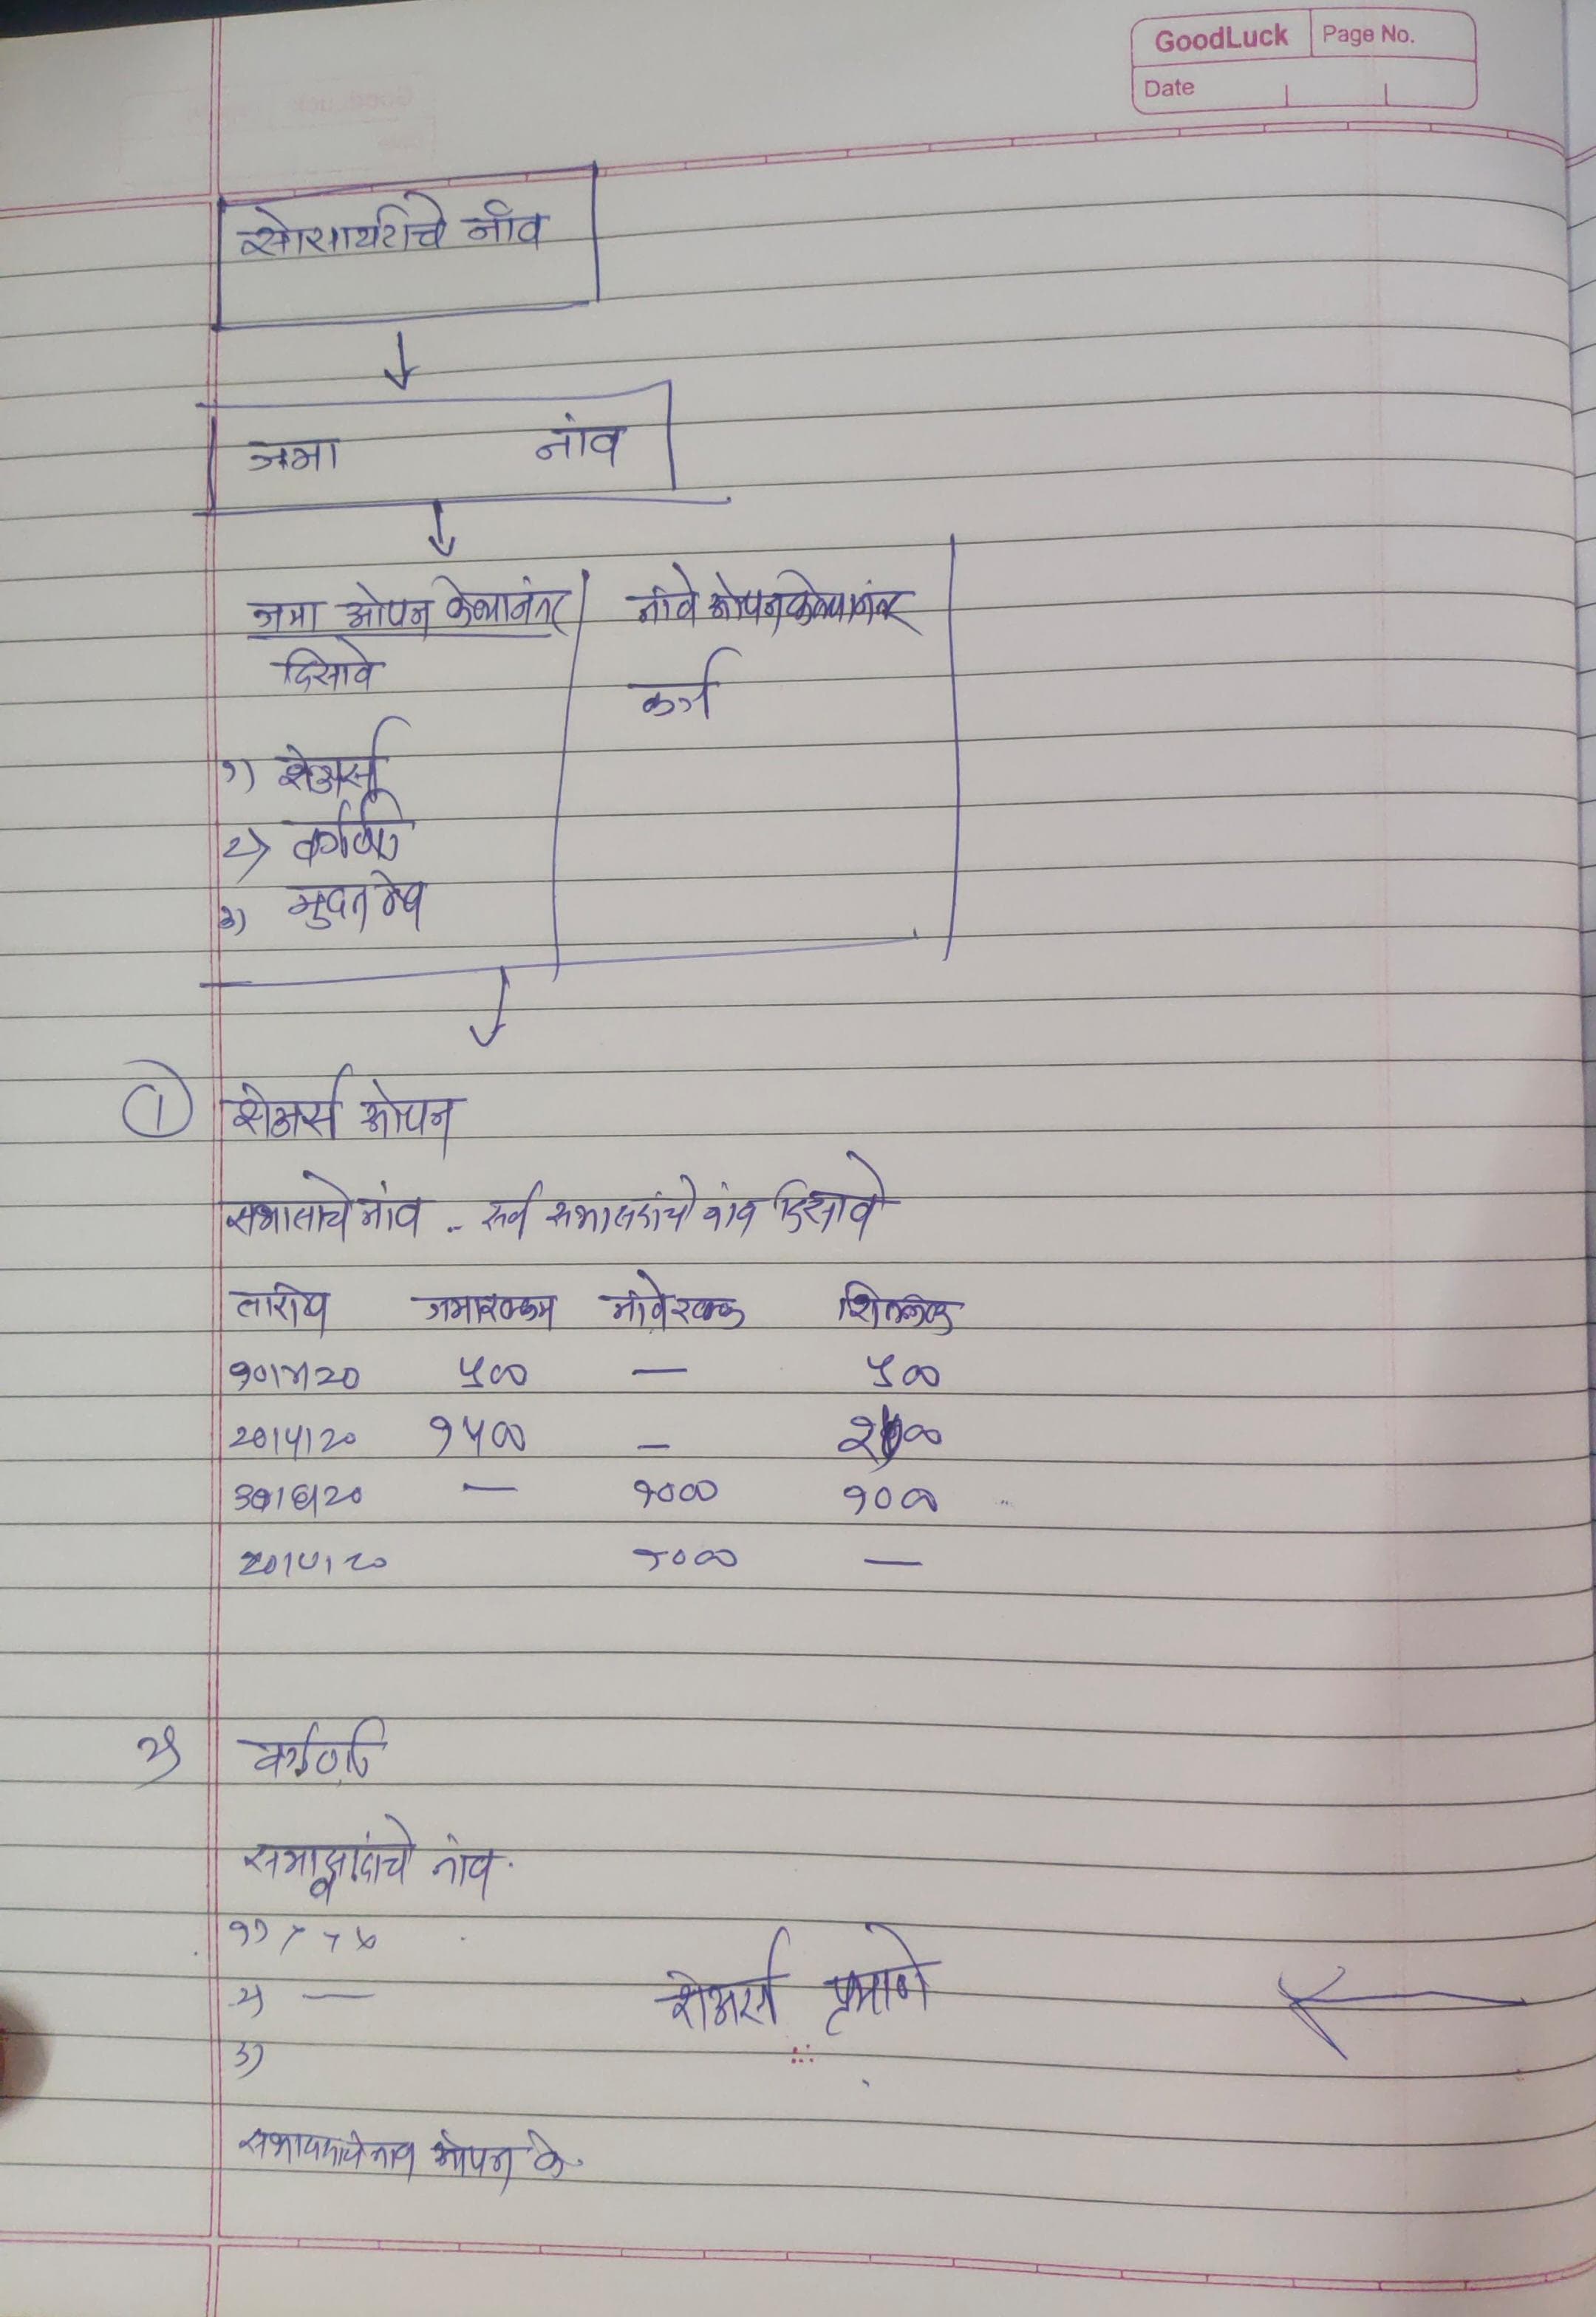 GoodLuck Page No.
Date
सोसायटीचे नांव
जमा नांव
जमा ओपन केल्यानंतर नांवे ओपन केल्यानंतर
दिसावे
कर्ज
१) शेअर्स
२) वर्गणी
३) मुदत ठेव
① शेअर्स ओपन
सभासदाचे नांव - सर्व सभासदांचे नांव दिसावे
तारीख जमा रक्कम नांवे रक्कम शिल्लक
१०।४।२० ५०० — ५००
२०।५।२० १५०० — २०००
३०।६।२० — १००० १०००
१००० —
२) वर्गणी
सभासदांचे नांव.
१)
२) —
शेअर्स प्रमाणे
३)
सभासदाचे नाव ओपन के.